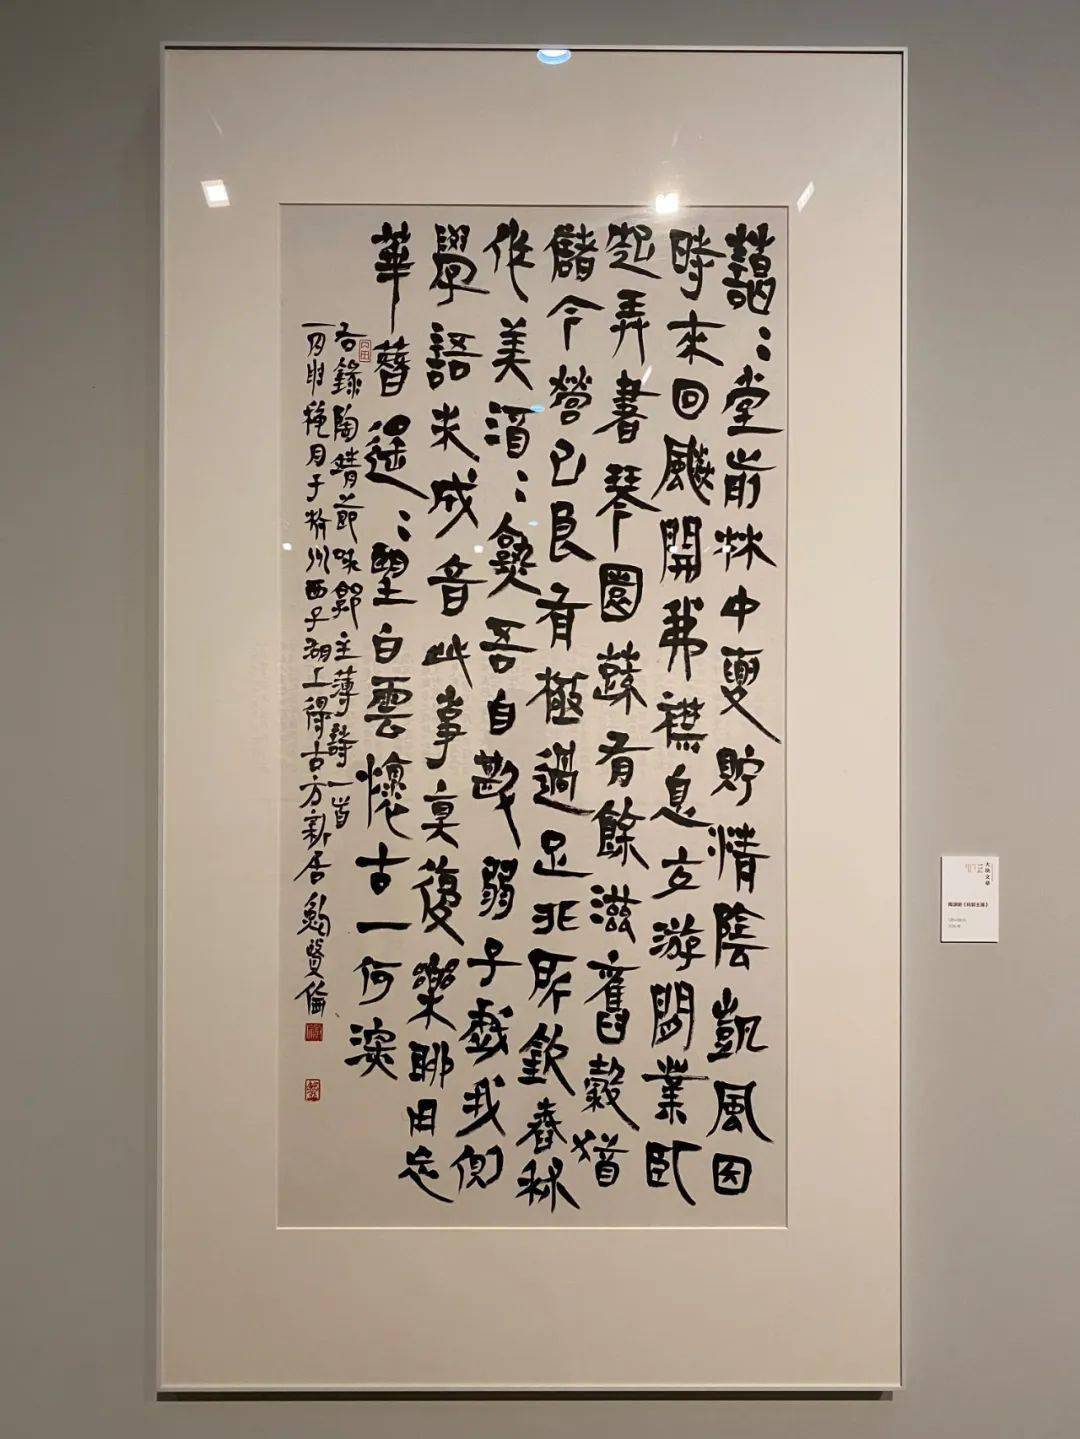 藹:堂前林中夏貯清陰凱風因
時來回飆開我襟息交游閑業臥
起弄書琴園蔬有餘滋舊穀猶
儲今營己良有極過足非所欽舂秫
作美酒:熟吾自斟弱子戲我側
學語未成音此事真復樂聊用忘
華簪遙:望白雲懷古一何深
右錄陶靖節咊郭主薄詩一首
丙申穐月于杭州西子湖上得古方新居鮑賢倫
大块文章
陶渊明《和郭主簿》